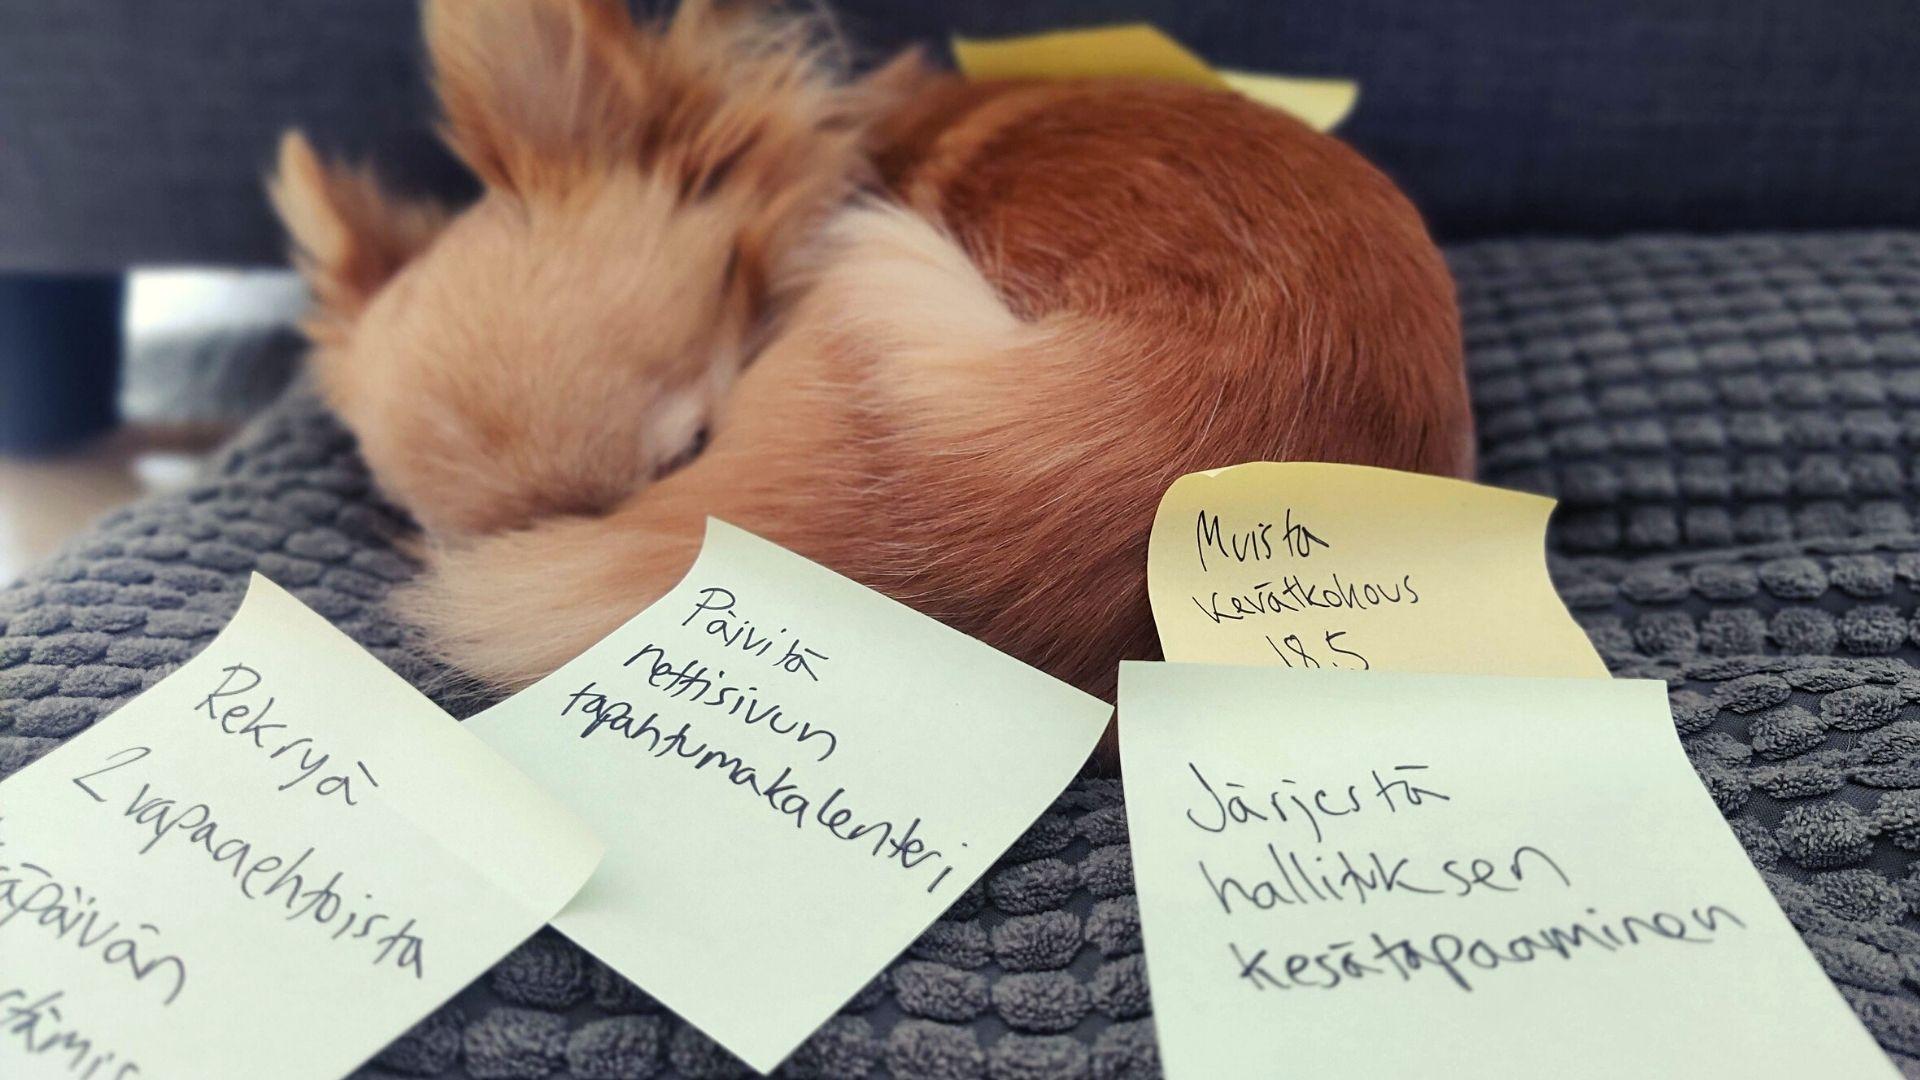 Rekryä
2 vapaaehtoista
Päivitä
nettisivun
tapahtumakalenteri
Muista
kevätkohous
18.5
Järjestä
hallituksen
kesätapaaminen